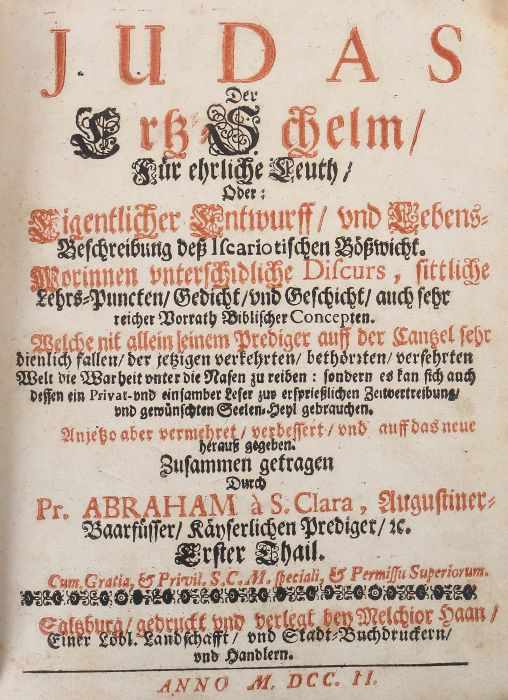 JUDAS
Der
Ertz-Schelm/
Für ehrliche Leuth/
Oder:
Eigentlicher Entwurff/ vnd Lebens-
Beschreibung deß Iscariotischen Bößwicht.
Worinnen vnterschidliche Discurs, sittliche
Lehrs-Puncten/ Gedicht/ vnd Geschicht/ auch sehr
reicher Vorrath Biblischer Concepten.
Welche nit allein einem Prediger auff der Cantzel sehr
dienlich fallen/ der jetzigen verkehrten/ bethörten/ versehrten
Welt die Warheit vnter die Nasen zu reiben: sondern es kan sich auch
dessen ein Privat- vnd einsamber Leser zur ersprießlichen Zeitvertreibung/
vnd gewünschten Seelen-Heyl gebrauchen.
Anjetzo aber vermehret/ verbessert/ vnd auff das neue
herauß gegeben.
Zusammen getragen
Durch
Pr. ABRAHAM à S. Clara, Augustiner-
Baarfüsser/ Käyserlichen Prediger/ ꝛc.
Erster Thail.
Cum Gratia, & Privil. S. C. M. speciali, & Permissu Superiorum.
Saltzburg/ gedruckt vnd verlegt bey Melchior Haan/
Einer Löbl. Landschafft/ vnd Stadt-Buchdruckern/
vnd Handlern.
ANNO M. DCC. II.